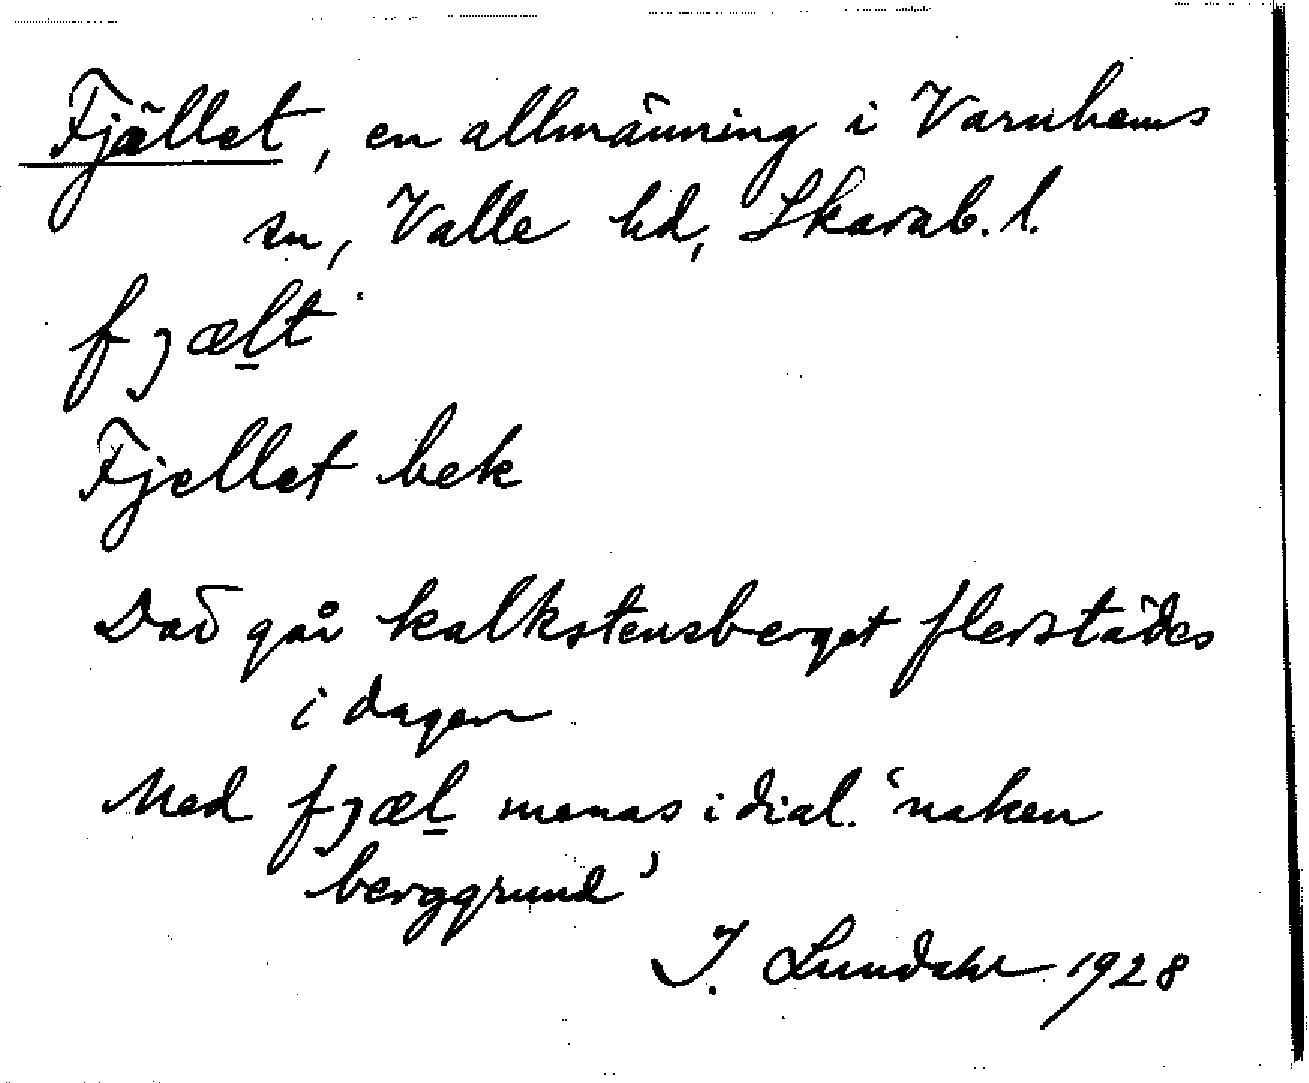 Fjället, en allmänning i Varnhems
sn, Valle hd, Skarab. l.
fjælt
Fjellet bek
Där går kalkstensberget flerstädes
i dagen
Med fjæl menas i dial. 'naken
berggrund'
I. Lundahl 1928